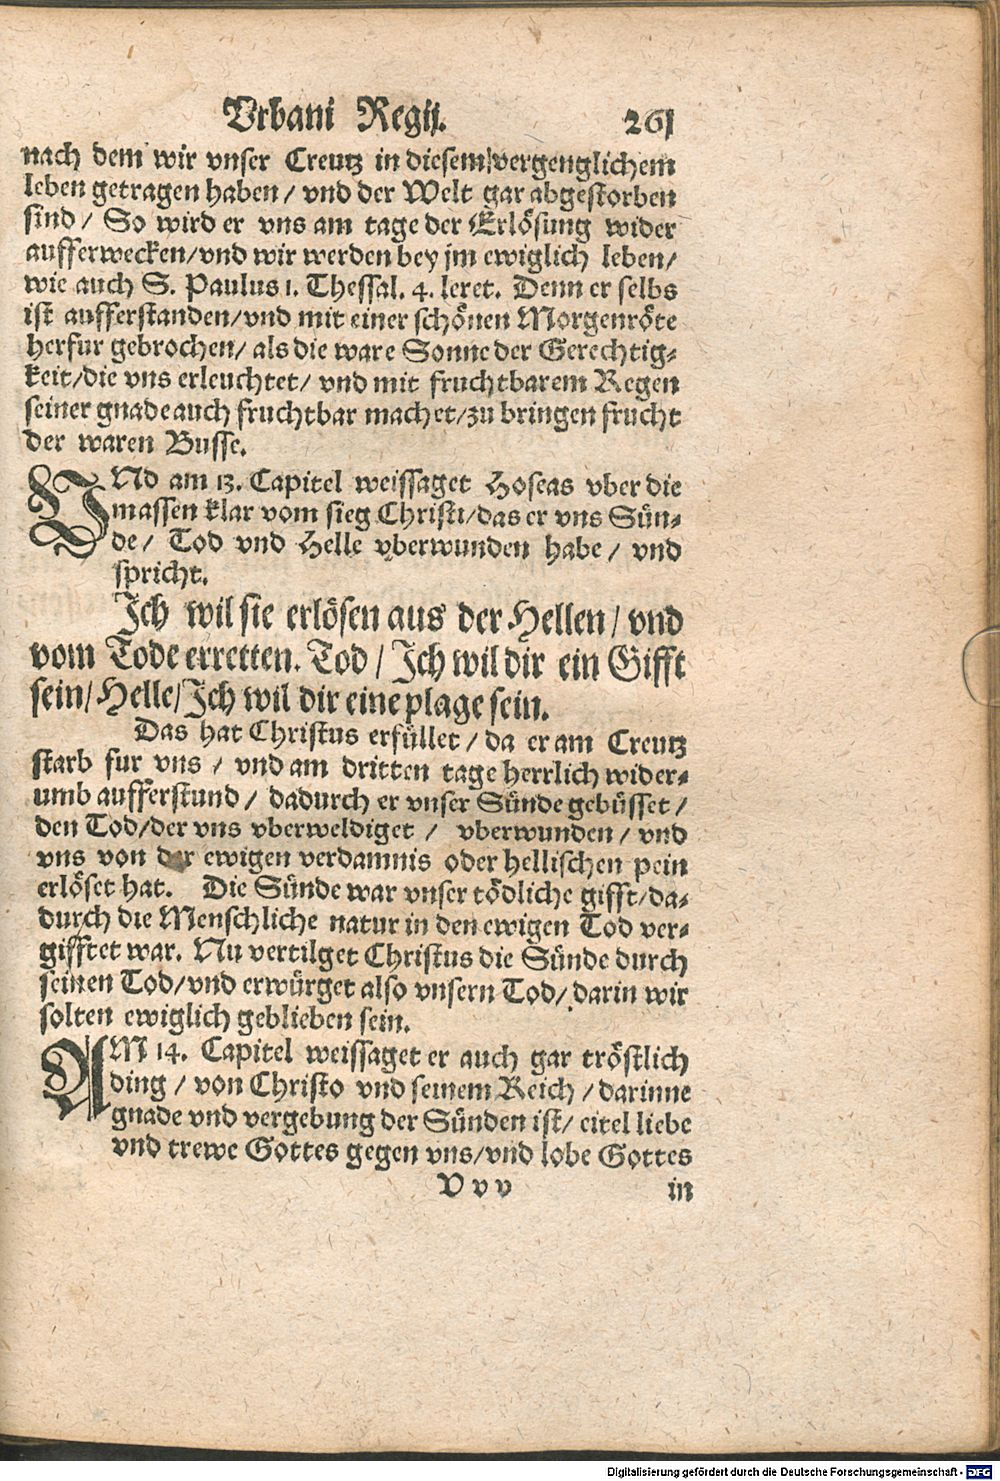 Vrbani Regij. 261
nach dem wir vnser Creutz in diesem vergenglichem
leben getragen haben / vnd der Welt gar abgestorben
sind / So wird er vns am tage der Erlösung wider
aufferwecken/vnd wir werden bey jm ewiglich leben/
wie auch S. Paulus 1. Thessal. 4. leret. Denn er selbs
ist aufferstanden/vnd mit einer schönen Morgenröte
herfur gebrochen/ als die ware Sonne der Gerechtig-
keit/die vns erleuchtet/ vnd mit fruchtbarem Regen
seiner gnade auch fruchtbar machet/zu bringen frucht
der waren Busse.
VNd am 13. Capitel weissaget Hoseas vber die
massen klar vom sieg Christi/das er vns Sün-
de / Tod vnd Helle vberwunden habe / vnd
spricht.
Ich wil sie erlösen aus der Hellen / vnd
vom Tode erretten. Tod / Ich wil dir ein Gifft
sein/ Helle/Ich wil dir eine plage sein.
Das hat Christus erfüllet / da er am Creutz
starb fur vns / vnd am dritten tage herrlich wider-
umb aufferstund / dadurch er vnser Sünde gebüsset /
den Tod/der vns vberweldiget / vberwunden / vnd
vns von der ewigen verdamnis oder hellischen pein
erlöset hat. Die Sünde war vnser tödliche gifft/da-
durch die Menschliche natur in den ewigen Tod ver-
gifftet war. Nu vertilget Christus die Sünde durch
seinen Tod/vnd erwürget also vnsern Tod/ darin wir
solten ewiglich geblieben sein.
AM 14. Capitel weissaget er auch gar tröstlich
ding / von Christo vnd seinem Reich / darinne
gnade vnd vergebung der Sünden ist/ eitel liebe
vnd trewe Gottes gegen vns/vnd lobe Gottes
V v v in
Digitalisierung gefördert durch die Deutsche Forschungsgemeinschaft - DFG